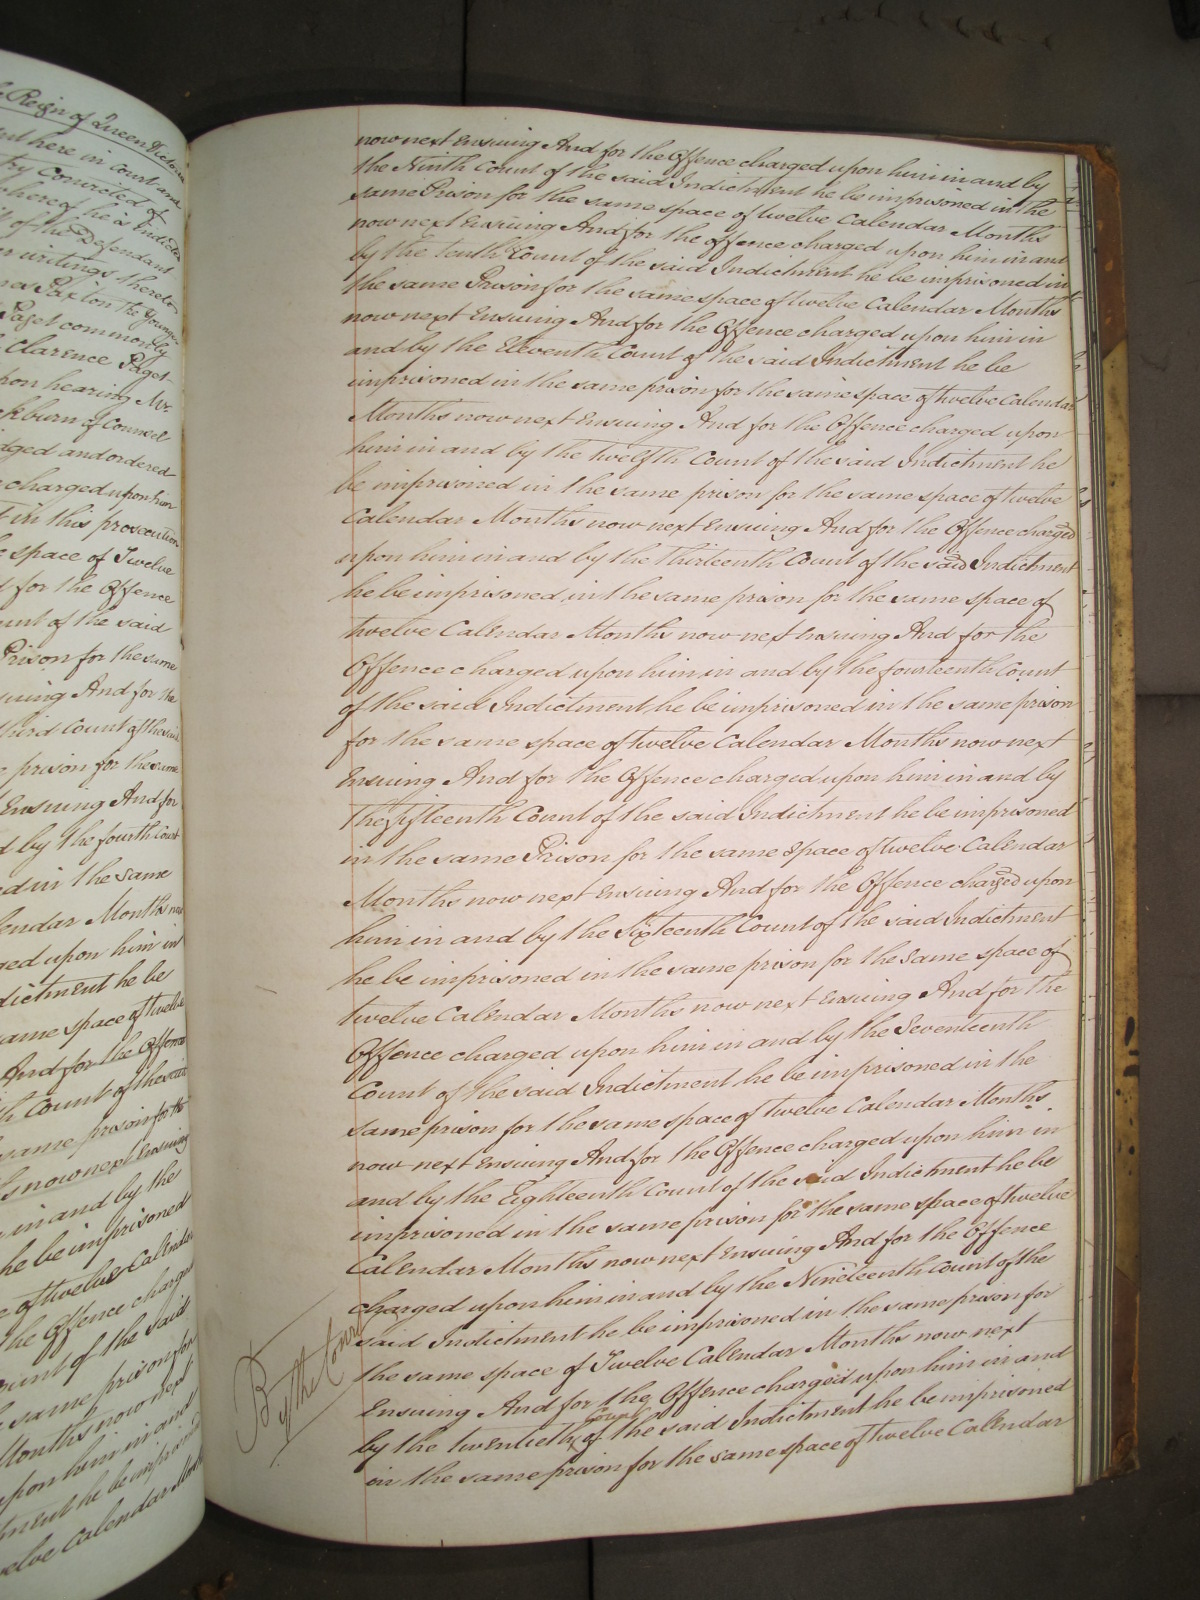 Reign of Queen Victoria
here in Court and
Convicted of
whereof he is Indicted
of the Defendant
writings thereto
Paxton the Younger
Paget commonly
Clarence Paget
upon hearing Mr.
of Counsel
and ordered
charged upon him
in this prosecution
space of Twelve
for the Offence
of the said
Prison for the same
And for the
third Count of the said
prison for the same
Ensuing And for
by the fourth Count
in the same
Calendar Months now
upon him in
Indictment he be
same space of twelve
And for the Offence
Count of the said
same prison for the
now next Ensuing
in and by the
he be imprisoned
of twelve Calendar
the Offence charged
Count of the said
same prison for
Months now next
upon him in and
he be imprisoned
twelve Calendar Months
now next Ensuing And for the Offence charged upon him in and by
the Ninth Count of the said Indictment he be imprisoned in the
same Prison for the same space of twelve Calendar Months
now next Ensuing And for the offence charged upon him in and
by the tenth Count of the said Indictment he be imprisoned in
the same Prison for the same space of twelve Calendar Months
now next Ensuing And for the Offence charged upon him in
and by the Eleventh Count of the said Indictment he be
imprisoned in the same prison for the same space of twelve Calendar
Months now next Ensuing And for the Offence charged upon
him in and by the twelfth Count of the said Indictment he
be imprisoned in the same prison for the same space of twelve
Calendar Months now next Ensuing And for the Offence charged
upon him in and by the thirteenth Count of the said Indictment
he be imprisoned in the same prison for the same space of
twelve Calendar Months now next Ensuing And for the
Offence charged upon him in and by the fourteenth Count
of the said Indictment he be imprisoned in the same prison
for the same space of twelve Calendar Months now next
Ensuing And for the Offence charged upon him in and by
the fifteenth Count of the said Indictment he be imprisoned
in the same Prison for the same space of twelve Calendar
Months now next Ensuing And for the Offence charged upon
him in and by the Sixteenth Count of the said Indictment
he be imprisoned in the same prison for the same space of
twelve Calendar Months now next Ensuing And for the
Offence charged upon him in and by the Seventeenth
Count of the said Indictment he be imprisoned in the
same prison for the same space of twelve Calendar Months
now next Ensuing And for the Offence charged upon him in
and by the Eighteenth Count of the said Indictment he be
imprisoned in the same prison for the same space of twelve
Calendar Months now next Ensuing And for the Offence
charged upon him in and by the Nineteenth Count of the
said Indictment he be imprisoned in the same prison for
the same space of Twelve Calendar Months now next
Ensuing And for the Offence charged upon him in and
by the twentieth Count of the said Indictment he be imprisoned
in the same prison for the same space of twelve Calendar
By the Court